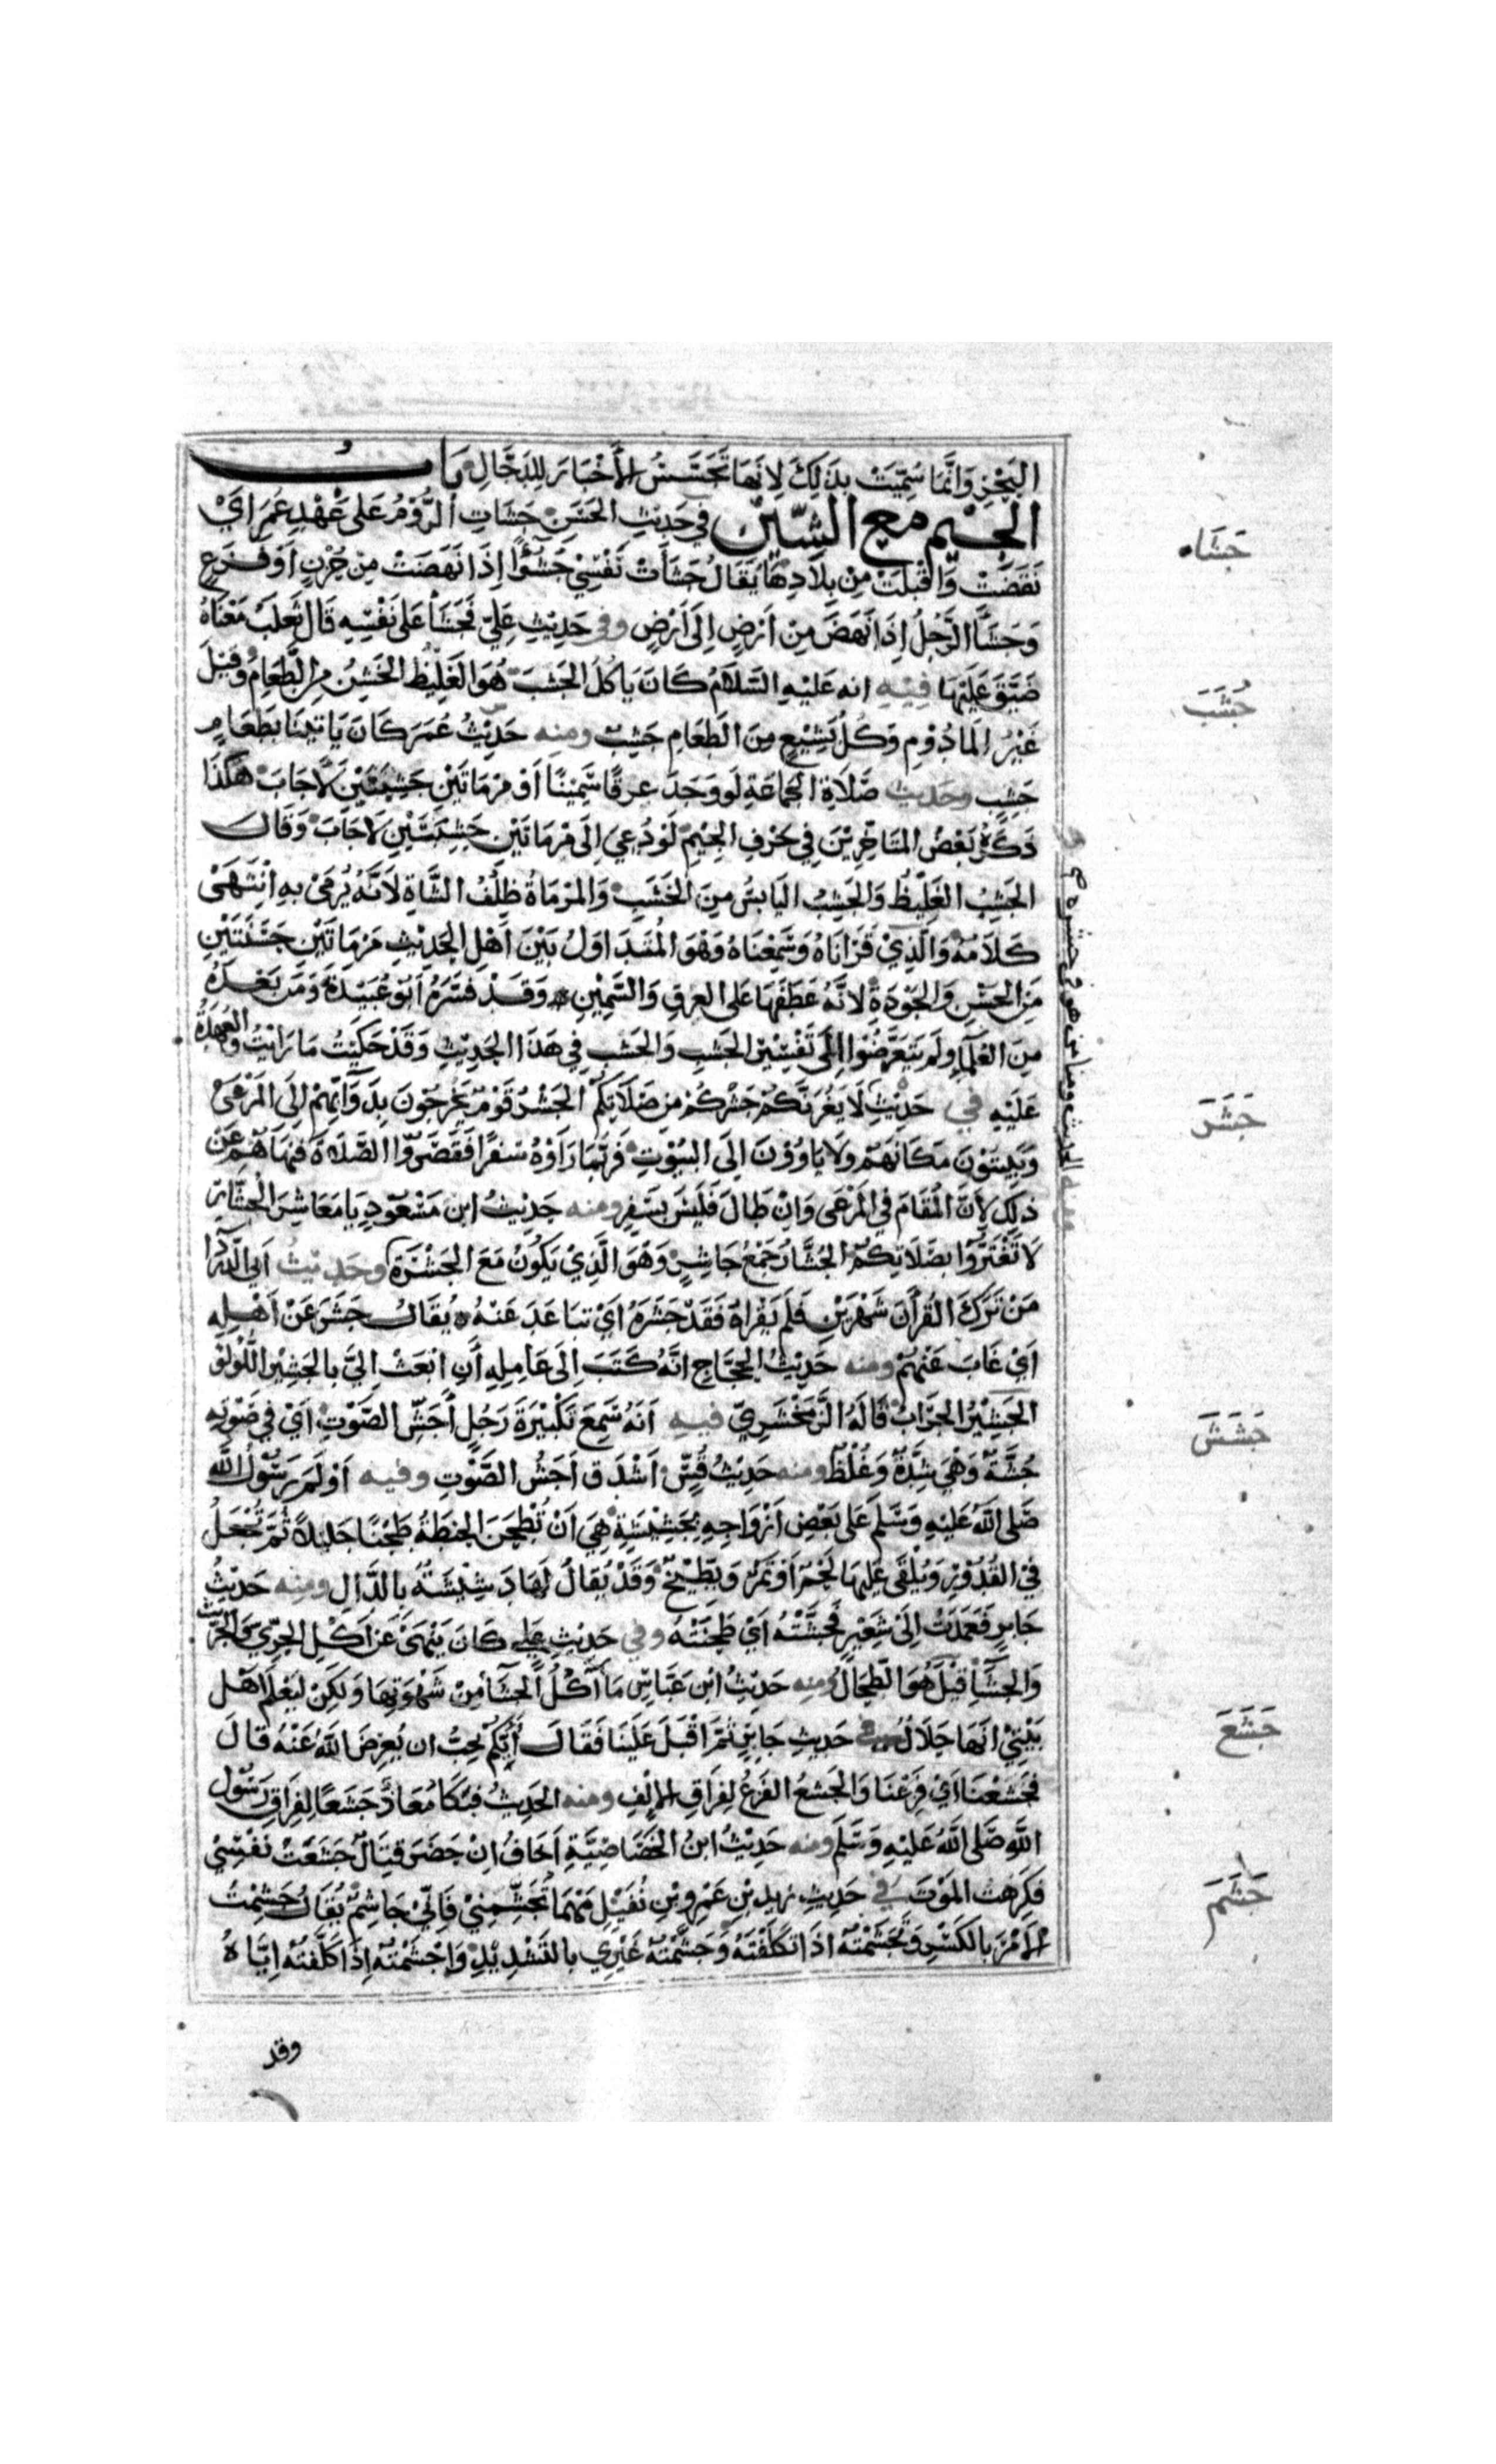 البَحْرِ وَاِنَّمَا سُمِّيَتْ بِذَلِكَ لِاَنَّهَا تَجَسَّسُ الْأَخْبَارَ لِلدَّجَّالِ بَابُ
الجِيْمِ مع الشِّيْن في حَدِيْثِ الحَسَنِ جَشَأَتِ الرُّوْمُ عَلَى عَهْدِ عُمَرَ اَيْ
نَهَضَتْ وَاَقْبَلَتْ مِنْ بِلاَدِهَا يُقَالُ جَشَأَتْ نَفْسِيْ جُشُوْأً اِذَا نَهَضَتْ مِنْ حُزْنٍ اَوْ فَزَعٍ
وَجَشَأَ الرَّجُلُ اِذَا نَهَضَ مِنْ اَرْضٍ اِلَى اَرْضٍ وفي حَدِيْثِ عَلِيّ فَجَشَأَ عَلَى نَفْسِهِ قَالَ ثَعْلَبٌ مَعْنَاهُ
ضَيَّقَ عَلَيْهَا فِيْهِ انه عَلَيْهِ السَّلاَمُ كَانَ يَاكُلُ الجَشَبَ هُوَ الغَلِيْظُ الخَشِنُ مِنَ الطَّعَامِ وَقِيْلَ
غَيْرُ المَادُوْمِ وَكُلُّ بَشِيْعٍ مِنَ الطَّعَامِ جَشِبٌ ومنه حَدِيْثُ عُمَرَ كَانَ يَاتِيْنَا بِطَعَامٍ
جَشِبٍ وحَدِيث صَلاَةِ الجَمَاعَةِ لَوْ وَجَدَ عِرْقًا سَمِيْنًا اَوْ مِرْمَاتَيْنِ جَشِبَتَيْنِ لَاَجَابَ هَكَذَا
ذَكَرَهُ بَعْضُ المُتَاَخِّرِيْنَ فِي حَرْفِ الجِيْمِ لَوْ دُعِيَ اِلَى مِرْمَاتَيْنِ جَشِبَتَيْنِ لَاَجَابَ وَقَالَ
الجَشِبُ الغَلِيْظُ وَالجَشِبُ اليَابِسُ مِنَ الخَشَبِ وَالمِرْمَاةُ ظِلْفُ الشَّاةِ لَاَنَّهُ يُرْمَى بِهِ اِنْتَهَىْ
كَلَامُهُ وَالَّذِيْ قَرَاْنَاهُ وَسَمِعْنَاهُ وَهُوَ المُتَدَاوَلُ بَيْنَ اَهْلِ الحَدِيْثِ مِرْمَاتَيْنِ حَسَنَتَيْنِ
مِنَ الحُسْنِ وَالجَوْدَةِ لِاَنَّهُ عَطَفَهَا عَلَى العِرْقِ السَّمِيْنِ وَقَدْ فَسَّرَهُ اَبُوْ عُبَيْدَةَ وَمَنْ بَعْدَهُ
مِنَ العُلَمَاءِ وَلَمْ يَتَعَرَّضُوْا اِلَى تَفْسِيْرِ الجَشِبِ وَالخَشَبِ فِي هَذَا الحَدِيْثِ وَقَدْ حَكَيْتُ مَا رَاَيْتُ وَالعُهْدَةُ
عَلَيْهِ في حَدِيْثِ لَا يَغُرَّنَّكُمْ جَشْرُكُمْ مِنْ صَلَاتِكُمْ الجَشْرُ قَوْمٌ يَخْرُجُوْنَ بِدَوَابِّهِمْ اِلَى المَرْعَىْ
وَيَبِيْتُوْنَ مَكَانَهُمْ وَلَا يَاوُوْنَ اِلَى البُيُوْتِ فَرُبَّمَا رَاَوْهُ سَفَرًا فَقَصَرُوْا الصَّلَاةَ فَنَهَاهُمْ عَنْ
ذلِكَ لِاَنَّ الْمُقَامَ فِي المَرْعَى وَاِنْ طَالَ فَلَيْسَ بِسَفَرٍ ومنه حَدِيْثُ ابْنِ مَسْعُوْدٍ يَا مَعَاشِرَ الْجُشَّارِ
لَا تَغْتَرُّوْا بِصَلَاتِكُمْ الجُشَّارُ جَمْعُ جَاشِرٍ وَهُوَ الَّذِيْ يَكُوْنُ مَعَ الجَشْرَةِ وحَدِيْثُ اَبِي الدَّرْدَا
مَنْ تَرَكَ القُرْاٰنَ شَهْرَيْنِ فَلَمْ يَقْرَاهُ فَقَدْ جَشَرَهُ اَيْ تَبَاعَدَ عَنْهُ يُقَالُ جَشَرَ عَنْ اَهْلِهِ
اَيْ غَابَ عَنْهُمْ ومنه حَدِيْثُ الحَجَّاجِ اَنَّهُ كَتَبَ اِلَى عَامِلِهِ اَنِ ابْعَثْ اِلَيَّ بِالجَشِيْرِ اللُّؤْلُؤِ
الجَشِيْرُ الجِرَابُ قَالَهُ الزَّمَخْشَرِيّ فيه اَنَهُ سَمِعَ تَكْبِيْرَةَ رَجُلٍ اَجَشِّ الصَّوْتِ اَيْ فِي صَوْتِهِ
جُشَّةٌ وَهْيَ شِدَّةٌ وَغُلْظٌ ومنه حَدِيْثُ قُسٍّ اَشْدَق اَجَشُّ الصَّوْتِ وفيه اَوْلَمَ رَسُوْلُ اللّٰهِ
صَلَى اللّٰهُ عَلَيْهِ وَسَلَّمَ عَلَى بَعْضِ اَزْوَاجِهِ بِجَشِيْشَةٍ هِيَ اَنْ تُطْحَنَ الحِنْطَةُ طَحْنًا جَلِيْلًا ثُمَّ تُجْعَلُ
فِي القُدُوْرِ وَيُلْقَى عَلَيْهَا لَحْمٌ اَوْ تَمْرٌ وَيُطْبَخُ وَقَدْ يُقَالُ لَهَا دَشِيْشَةٌ بِالدَّالِ ومنه حَدِيْثُ
جَابِرٍ فَعَمَدَتْ اِلَىْ شَعِيْرٍ فَجَشَّتْهُ اَيْ طَحَنَتْهُ وفي حَدِيْثِ عَلِي كَانَ يَنْهَىْ عَنْ اَكْلِ الجِرِّيْ وَالجِرِّيْث
وَالجَشَّاءِ قِيْلَ هُوَ الطِّحَالُ ومنه حَدِيْثُ ابْنِ عَبَّاسٍ مَا اٰكُلُ الجَشَّاءَ مِنْ شَهْوَتِهَا وَلَكِنْ لِيَعْلَمَ اَهْلُ
بَيْتِيْ اَنَّهَا حَلَالٌ في حَدِيثِ جَابِرٍ ثُمَّ اَقْبَلَ عَلَيْنَا فَقَالَ اَيُّكُمْ يُحِبُّ ان يُعْرِضَ اللّٰهُ عَنْهُ قَالَ
فَجَشِعْنَا اَيْ فَزِعْنَا وَالجَشَعُ الفَزَعُ لِفِرَاقِ الْاِلْفِ ومنه الحَدِيْثُ فَبَكَا مُعَاذٌ جَشَعًا لِفِرَاقِ رَسُوْلِ
اللّٰهِ صَلَى اللّٰهُ عَلَيْهِ وَسَلَّمَ ومنه حَدِيْثُ ابْنِ الخَصَاصِيَّةِ اَخَافُ اِنْ حَضَرَ قِتَالٌ جَشِعَتْ نَفْسِيْ
فَكَرِهْتُ المَوْتَ في حَدِيْثِ زَيْدِ بْنِ عَمْرِو بْنِ نُفَيْلٍ مَهْمَا تُجَشِّمْنِيْ فَاِنِّيْ جَاشِمٌ يُقَالُ جَشِمْتُ
الْاَمْرَ بِالكَسْرِ وَتَجَشَّمْتُهُ اِذَا تَكَلَّفْتَهُ وَجَشَّمْتُهُ غَيْرِي بِالتَّشْدِيْدِ وَاَجْشَمْتُهُ اِذَا كَلَّفْتَهُ اِيَّاهُ
وقد
جَشَاء
جَشَبَ
جَشَرَ
جَشَشَ
جَشَعَ
جَشَمَ